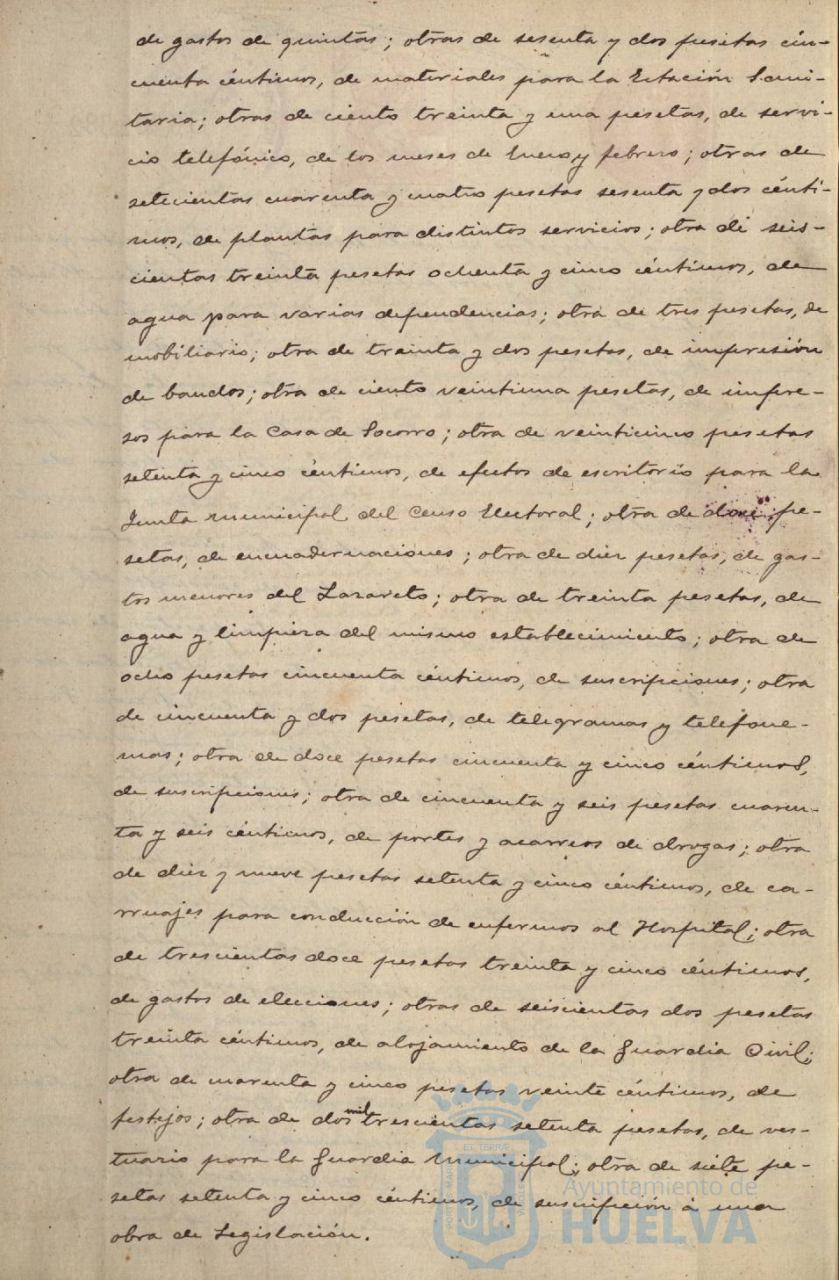 de gastos de quintas; otras de sesenta y dos pesetas cin-
cuenta céntimos, de materiales para la Estación Sani-
taria; otras de ciento treinta y una pesetas, de servi-
cio telefónico, de los meses de Enero y febrero; otras de
setecientas cuarenta y cuatro pesetas sesenta y dos cénti-
mos, de plantas para distintos servicios; otra de seis-
cientas treinta pesetas ochenta y cinco céntimos, de
agua para varias dependencias; otra de tres pesetas, de
mobiliario; otra de treinta y dos pesetas, de impresión
de bandos; otra de ciento veintiuna pesetas, de impre-
sos para la Casa de Socorro; otra de veinticinco pesetas
setenta y cinco céntimos, de efectos de escritorio para la
Junta municipal del Censo Electoral; otra de doce pe-
setas, de encuadernaciones; otra de diez pesetas, de gas-
tos menores del Lazareto; otra de treinta pesetas, de
agua y limpieza del mismo establecimiento; otra de
ocho pesetas cincuenta céntimos, de suscripciones; otra
de cincuenta y dos pesetas, de telegramas y telefone-
mas; otra de doce pesetas cincuenta y cinco céntimos,
de suscripciones; otra de cincuenta y seis pesetas cuaren-
ta y seis céntimos, de portes y acarreos de drogas; otra
de diez y nueve pesetas setenta y cinco céntimos, de ca-
rruajes para conducción de enfermos al Hospital; otra
de trescientas doce pesetas treinta y cinco céntimos,
de gastos de elecciones; otras de seiscientas dos pesetas
treinta céntimos, de alojamiento de la Guardia Civil;
otra de cuarenta y cinco pesetas veinte céntimos, de
festejos; otra de dos mil trescientas setenta pesetas, de ves-
tuario para la Guardia Municipal; otra de siete pe-
setas setenta y cinco céntimos, de suscripción a una
obra de Legislación.
Ayuntamiento de
HUELVA